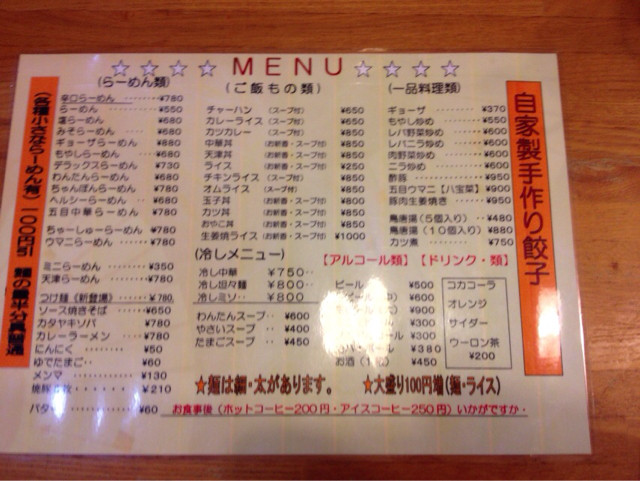 ☆☆☆☆MENU☆☆☆☆
(各種小さならーめん有)一〇〇円引
自家製手作り餃子
(らーめん類)
辛口らーめん ¥780
らーめん ¥550
塩らーめん ¥680
みそらーめん ¥680
ギョーザらーめん ¥880
もやしらーめん ¥680
デラックスらーめん ¥730
わんたんらーめん ¥680
ちゃんぽんらーめん ¥780
ヘルシーらーめん ¥680
五目中華らーめん ¥780
ちゃーしゅーらーめん ¥780
ウマニらーめん ¥780
ミニらーめん ¥350
天津らーめん ¥780
つけ麺(新登場) ¥780
ソース焼きそば ¥650
カタヤキソバ ¥780
カレーラーメン ¥780
にんにく ¥50
ゆでたまご ¥60
メンマ ¥130
¥210
バター ¥60
(ご飯もの類)
チャーハン (スープ付) ¥650
カレーライス (スープ付) ¥650
カツカレー (スープ付) ¥850
中華丼 (お新香・スープ付) ¥850
天津丼 (お新香・スープ付) ¥850
ライス (お新香・スープ付) ¥250
チキンライス (スープ付) ¥850
オムライス (スープ付) ¥850
玉子丼 (お新香・スープ付) ¥800
カツ丼 (お新香・スープ付) ¥850
おやこ丼 (お新香・スープ付) ¥850
生姜焼ライス (お新香・スープ付) ¥1000
(冷しメニュー)
冷し中華 ¥750
冷し坦々麺 ¥800
冷しミソ ¥800
わんたんスープ ¥600
やさいスープ ¥400
たまごスープ ¥450
(一品料理類)
ギョーザ ¥370
もやし炒め ¥550
レバ野菜炒め ¥600
レバニラ炒め ¥600
肉野菜炒め ¥600
ニラ炒め ¥600
酢豚 ¥950
五目ウマニ【八宝菜】 ¥900
豚肉生姜焼き ¥950
鳥唐揚(5個入り) ¥480
鳥唐揚(10個入り) ¥880
カツ煮 ¥750
【アルコール類】【ドリンク・類】
ビール ¥500
¥600
¥300
¥400
¥380
お酒 ¥450
コカコーラ
オレンジ
サイダー
ウーロン茶
¥200
★麺は細・太があります。 ★大盛り100円増(麺・ライス)
お食事後(ホットコーヒー200円・アイスコーヒー250円)いかがですか・